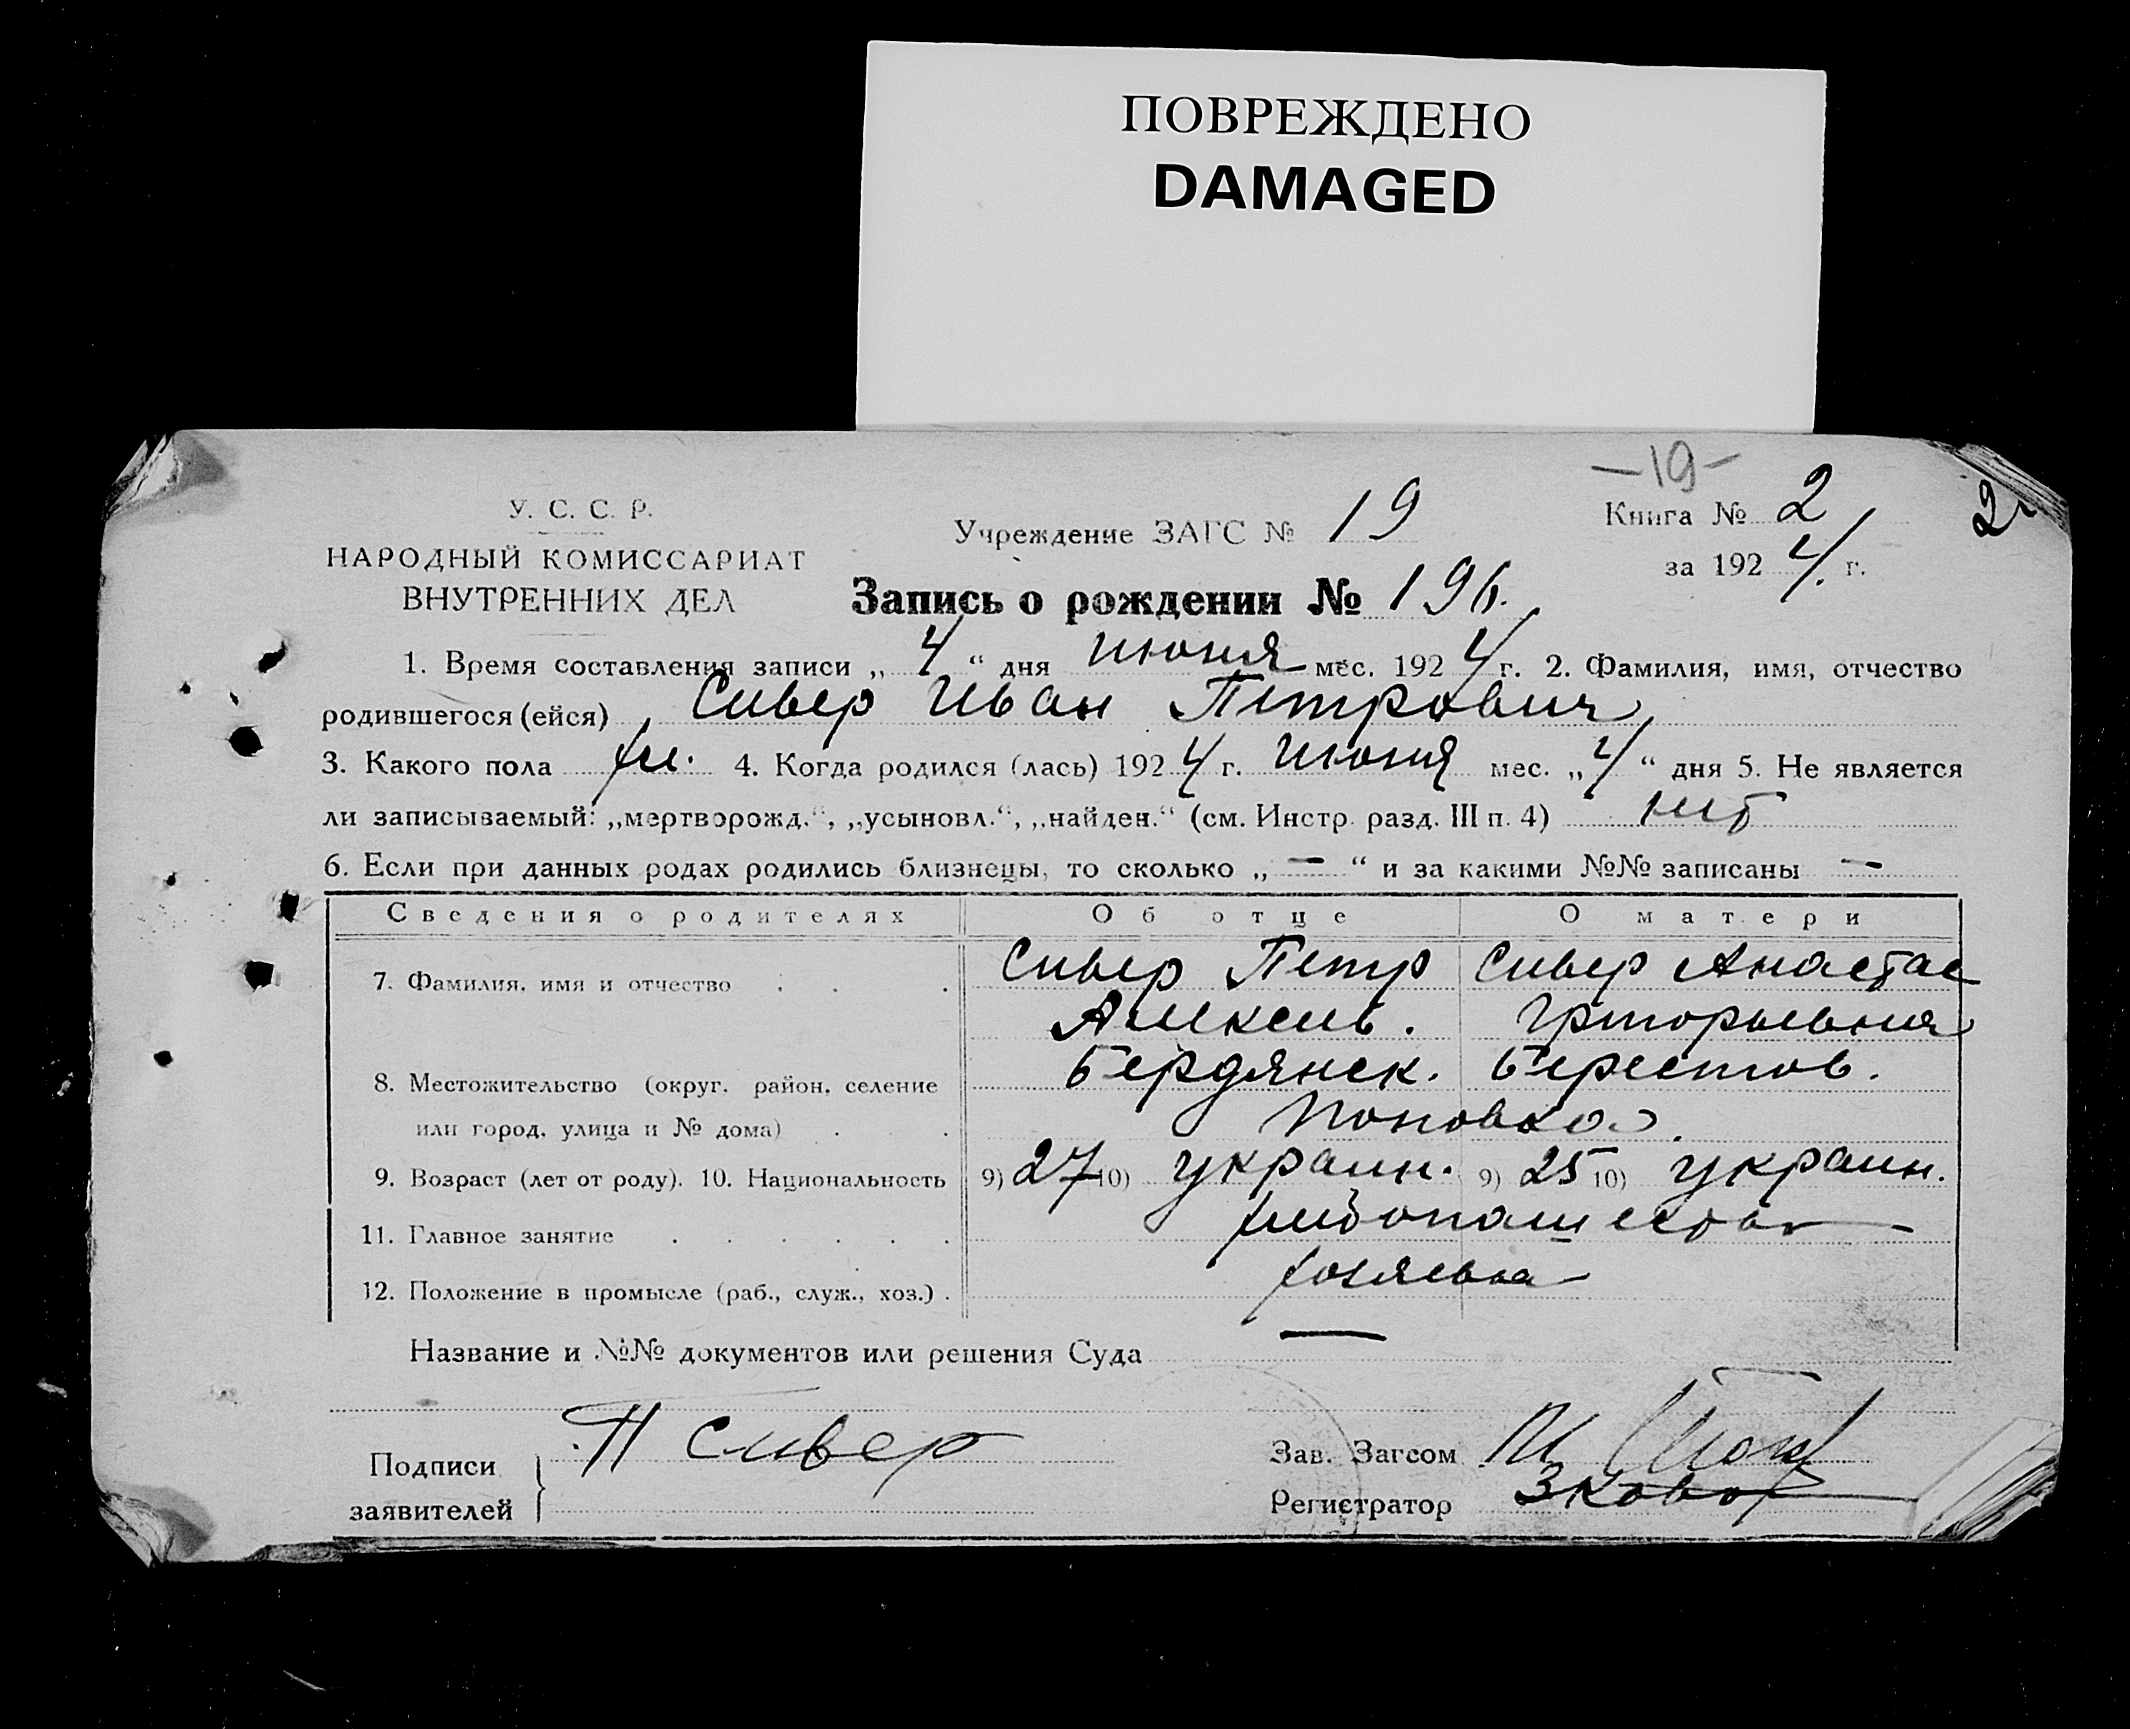 ПОВРЕЖДЕНО
DAMAGED
-19-
2
У. С. С. Р.
НАРОДНЫЙ КОМИССАРИАТ
ВНУТРЕННИХ ДЕЛ
Учреждение ЗАГС № 19
Книга № 2
за 1924 г.
Запись о рождении № 196.
1. Время составления записи „ 4 “ дня июня мес. 1924 г. 2. Фамилия, имя, отчество
родившегося (ейся) Сивер Иван Петрович
3. Какого пола м. 4. Когда родился (лась) 1924 г. июня мес. „ 4 “ дня 5. Не является
ли записываемый: „мертворожд.“, „усыновл.“, „найден.“ (см. Инстр. разд. III п. 4) нет
6. Если при данных родах родились близнецы, то сколько „ — “ и за какими №№ записаны —
Сведения о родителях Об отце О матери
7. Фамилия, имя и отчество Сивер Петр Сивер Анастас
Алексеев. Григорьевна
8. Местожительство (округ, район, селение Бердянск. Берестов.
или город, улица и № дома) Поповка
9. Возраст (лет от роду). 10. Национальность 9) 27 10) украин. 9) 25 10) украин.
11. Главное занятие
12. Положение в промысле (раб., служ., хоз.) хозяева
Название и №№ документов или решения Суда —
Подписи
заявителей
П Сивер
Зав. Загсом
Регистратор